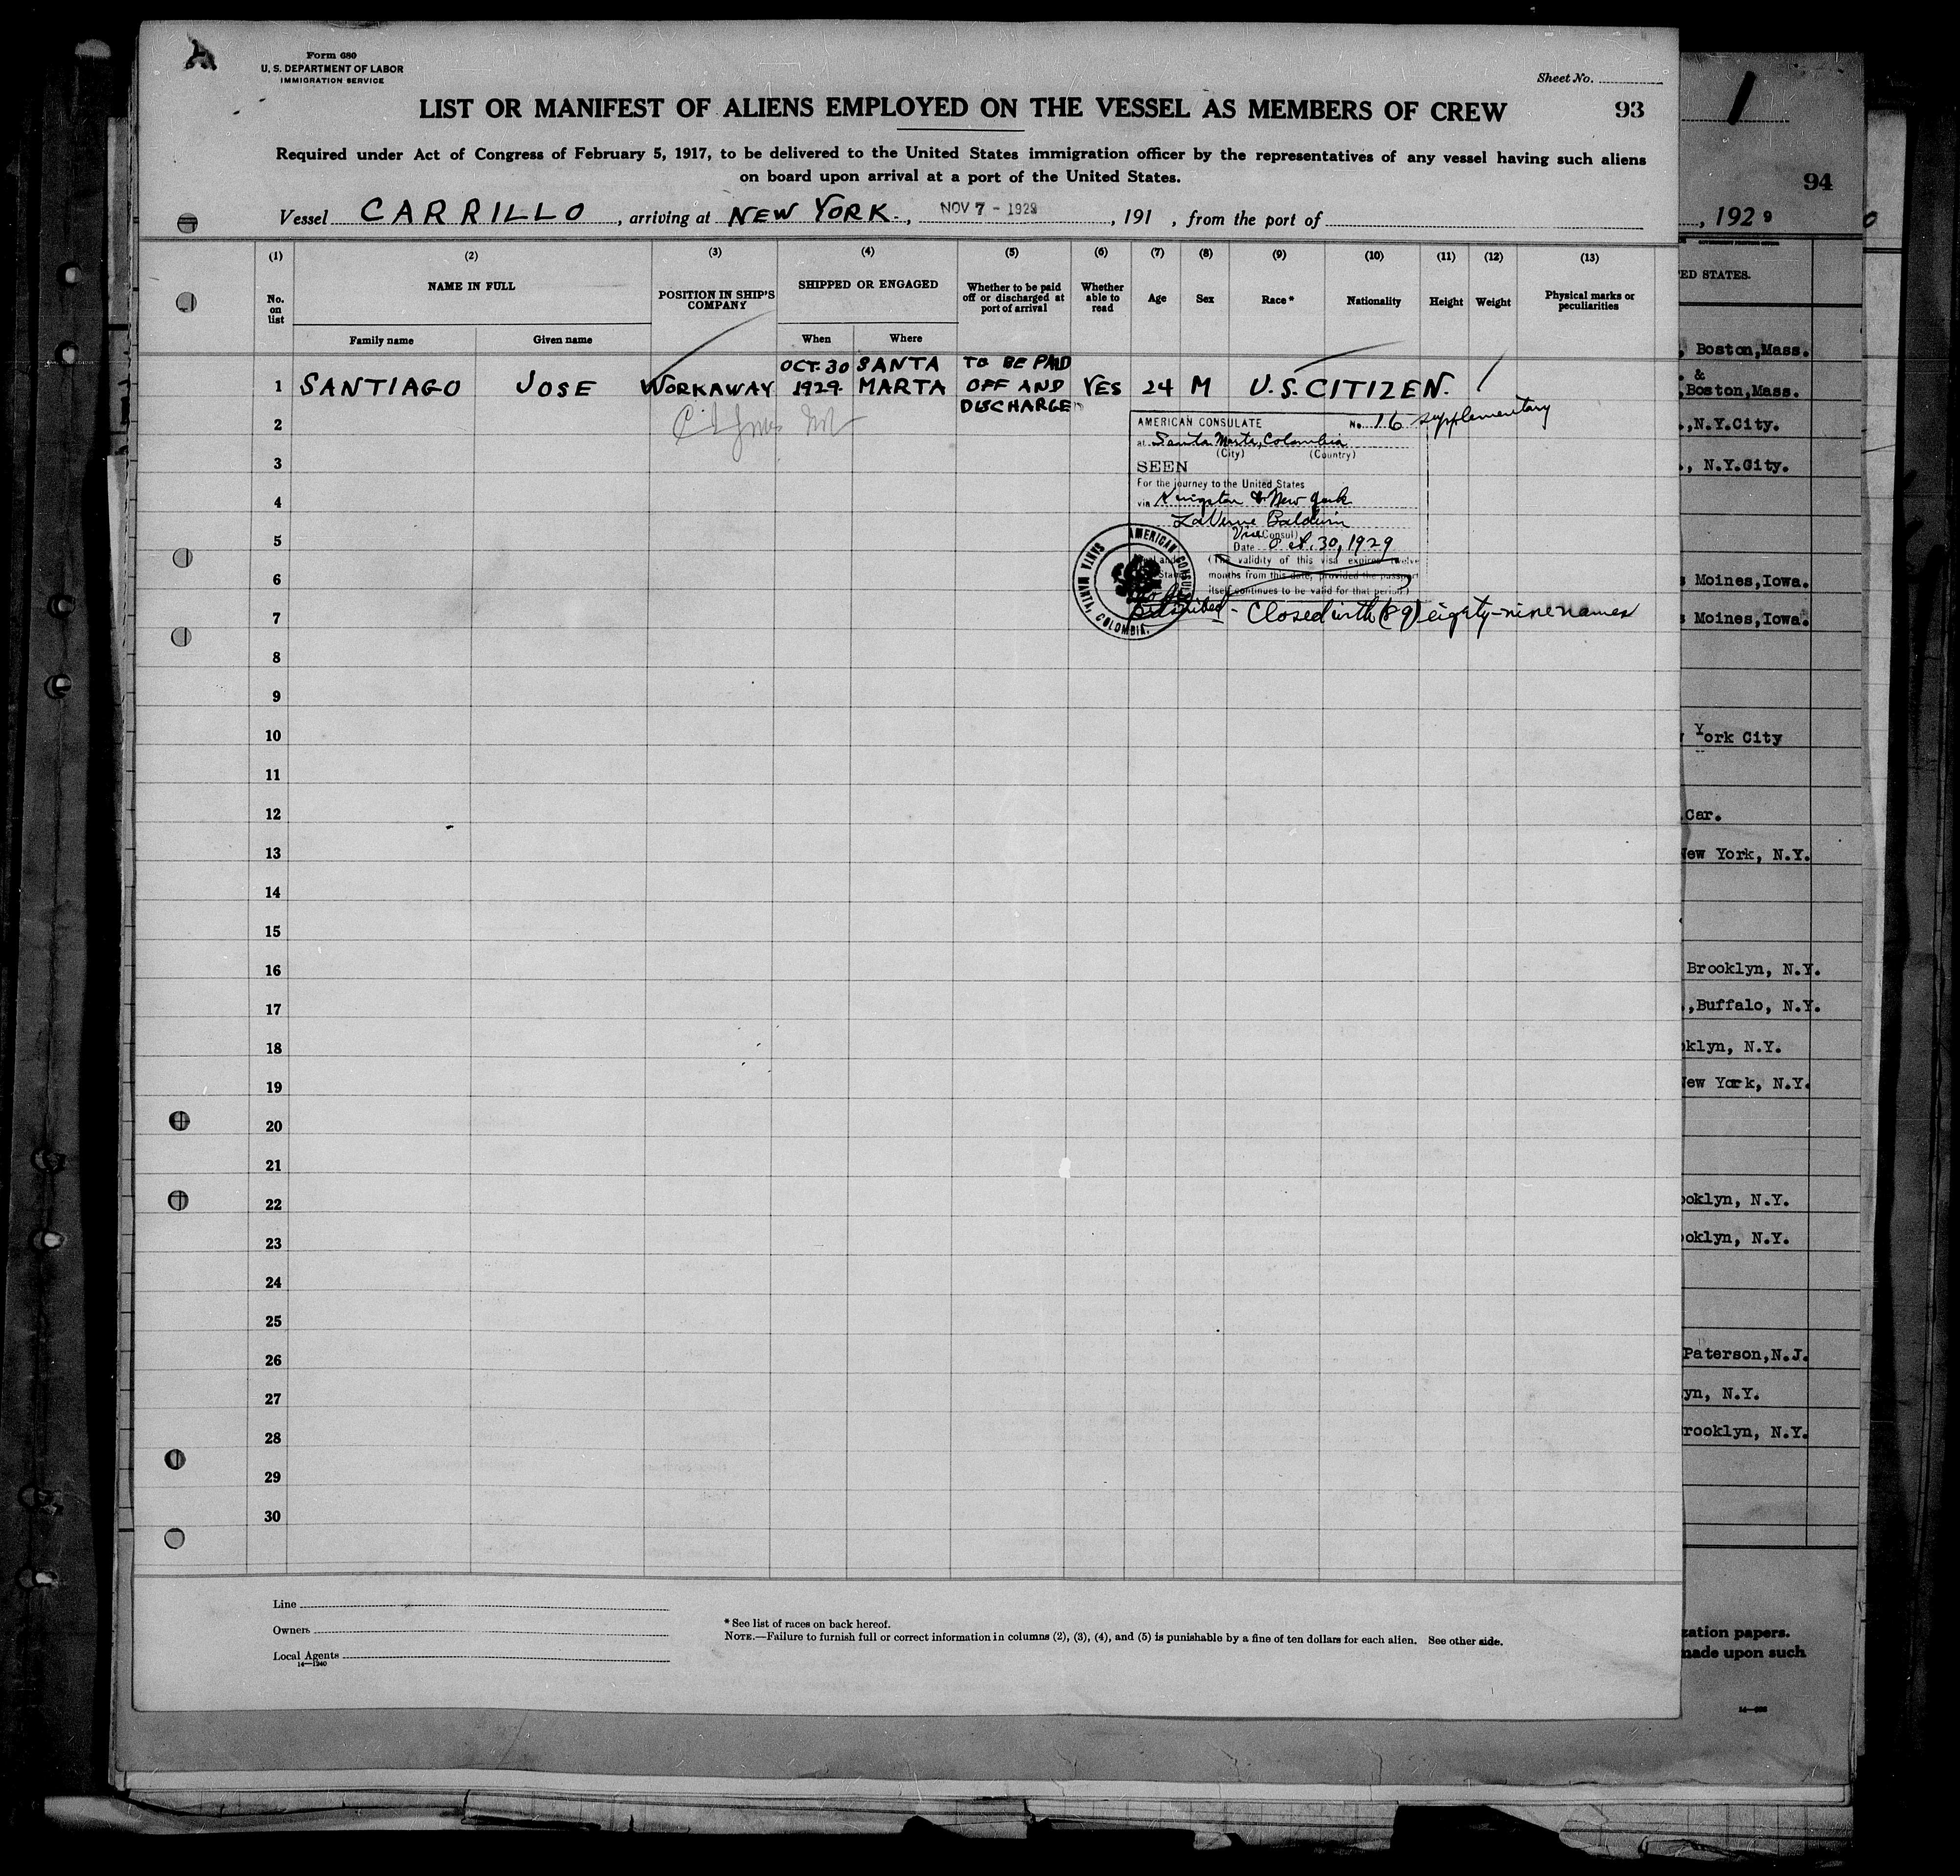 A
Form 680
U. S. DEPARTMENT OF LABOR
IMMIGRATION SERVICE
Sheet No.
LIST OR MANIFEST OF ALIENS EMPLOYED ON THE VESSEL AS MEMBERS OF CREW
93
Required under Act of Congress of February 5, 1917, to be delivered to the United States immigration officer by the representatives of any vessel having such aliens
on board upon arrival at a port of the United States.
Vessel CARRILLO, arriving at NEW YORK., NOV 7 - 1929, 191 , from the port of
(1) (2) (3) (4) (5) (6) (7) (8) (9) (10) (11) (12) (13)
No. on list
NAME IN FULL
Family name
Given name
POSITION IN SHIP'S COMPANY
SHIPPED OR ENGAGED
When
Where
Whether to be paid off or discharged at port of arrival
Whether able to read
Age
Sex
Race*
Nationality
Height
Weight
Physical marks or peculiarities
1 SANTIAGO JOSE WORKAWAY OCT. 30 1929. SANTA MARTA TO BE PAID OFF AND DISCHARGE YES 24 M U.S. CITIZEN.
2
3
4
5
6
7
8
9
10
11
12
13
14
15
16
17
18
19
20
21
22
23
24
25
26
27
28
29
30
AMERICAN CONSULATE No. 16 supplementary
at Santa Marta, Colombia
(City) (Country)
SEEN
For the journey to the United States
via Kingston & New York
LaVerne Baldwin
Vice Consul
Date Oct. 30, 1929
(The validity of this visa expires twelve
months from this date, provided the passport
itself continues to be valid for that period)
AMERICAN CONSULATE
SANTA MARTA, COLOMBIA.
- Closed with (89) eighty-nine names
Line
Owners
Local Agents
14—1240
* See list of races on back hereof.
NOTE.—Failure to furnish full or correct information in columns (2), (3), (4), and (5) is punishable by a fine of ten dollars for each alien. See other side.
1
94
, 1929
ED STATES.
, Boston,Mass.
&
,Boston,Mass.
.,N.Y.City.
., N.Y.City.
s Moines,Iowa.
s Moines,Iowa.
York City
.Car.
New York, N.Y.
Brooklyn, N.Y.
.,Buffalo, N.Y.
oklyn, N.Y.
New York, N.Y.
ooklyn, N.Y.
ooklyn, N.Y.
Paterson,N.J.
yn, N.Y.
rooklyn, N.Y.
zation papers.
made upon such